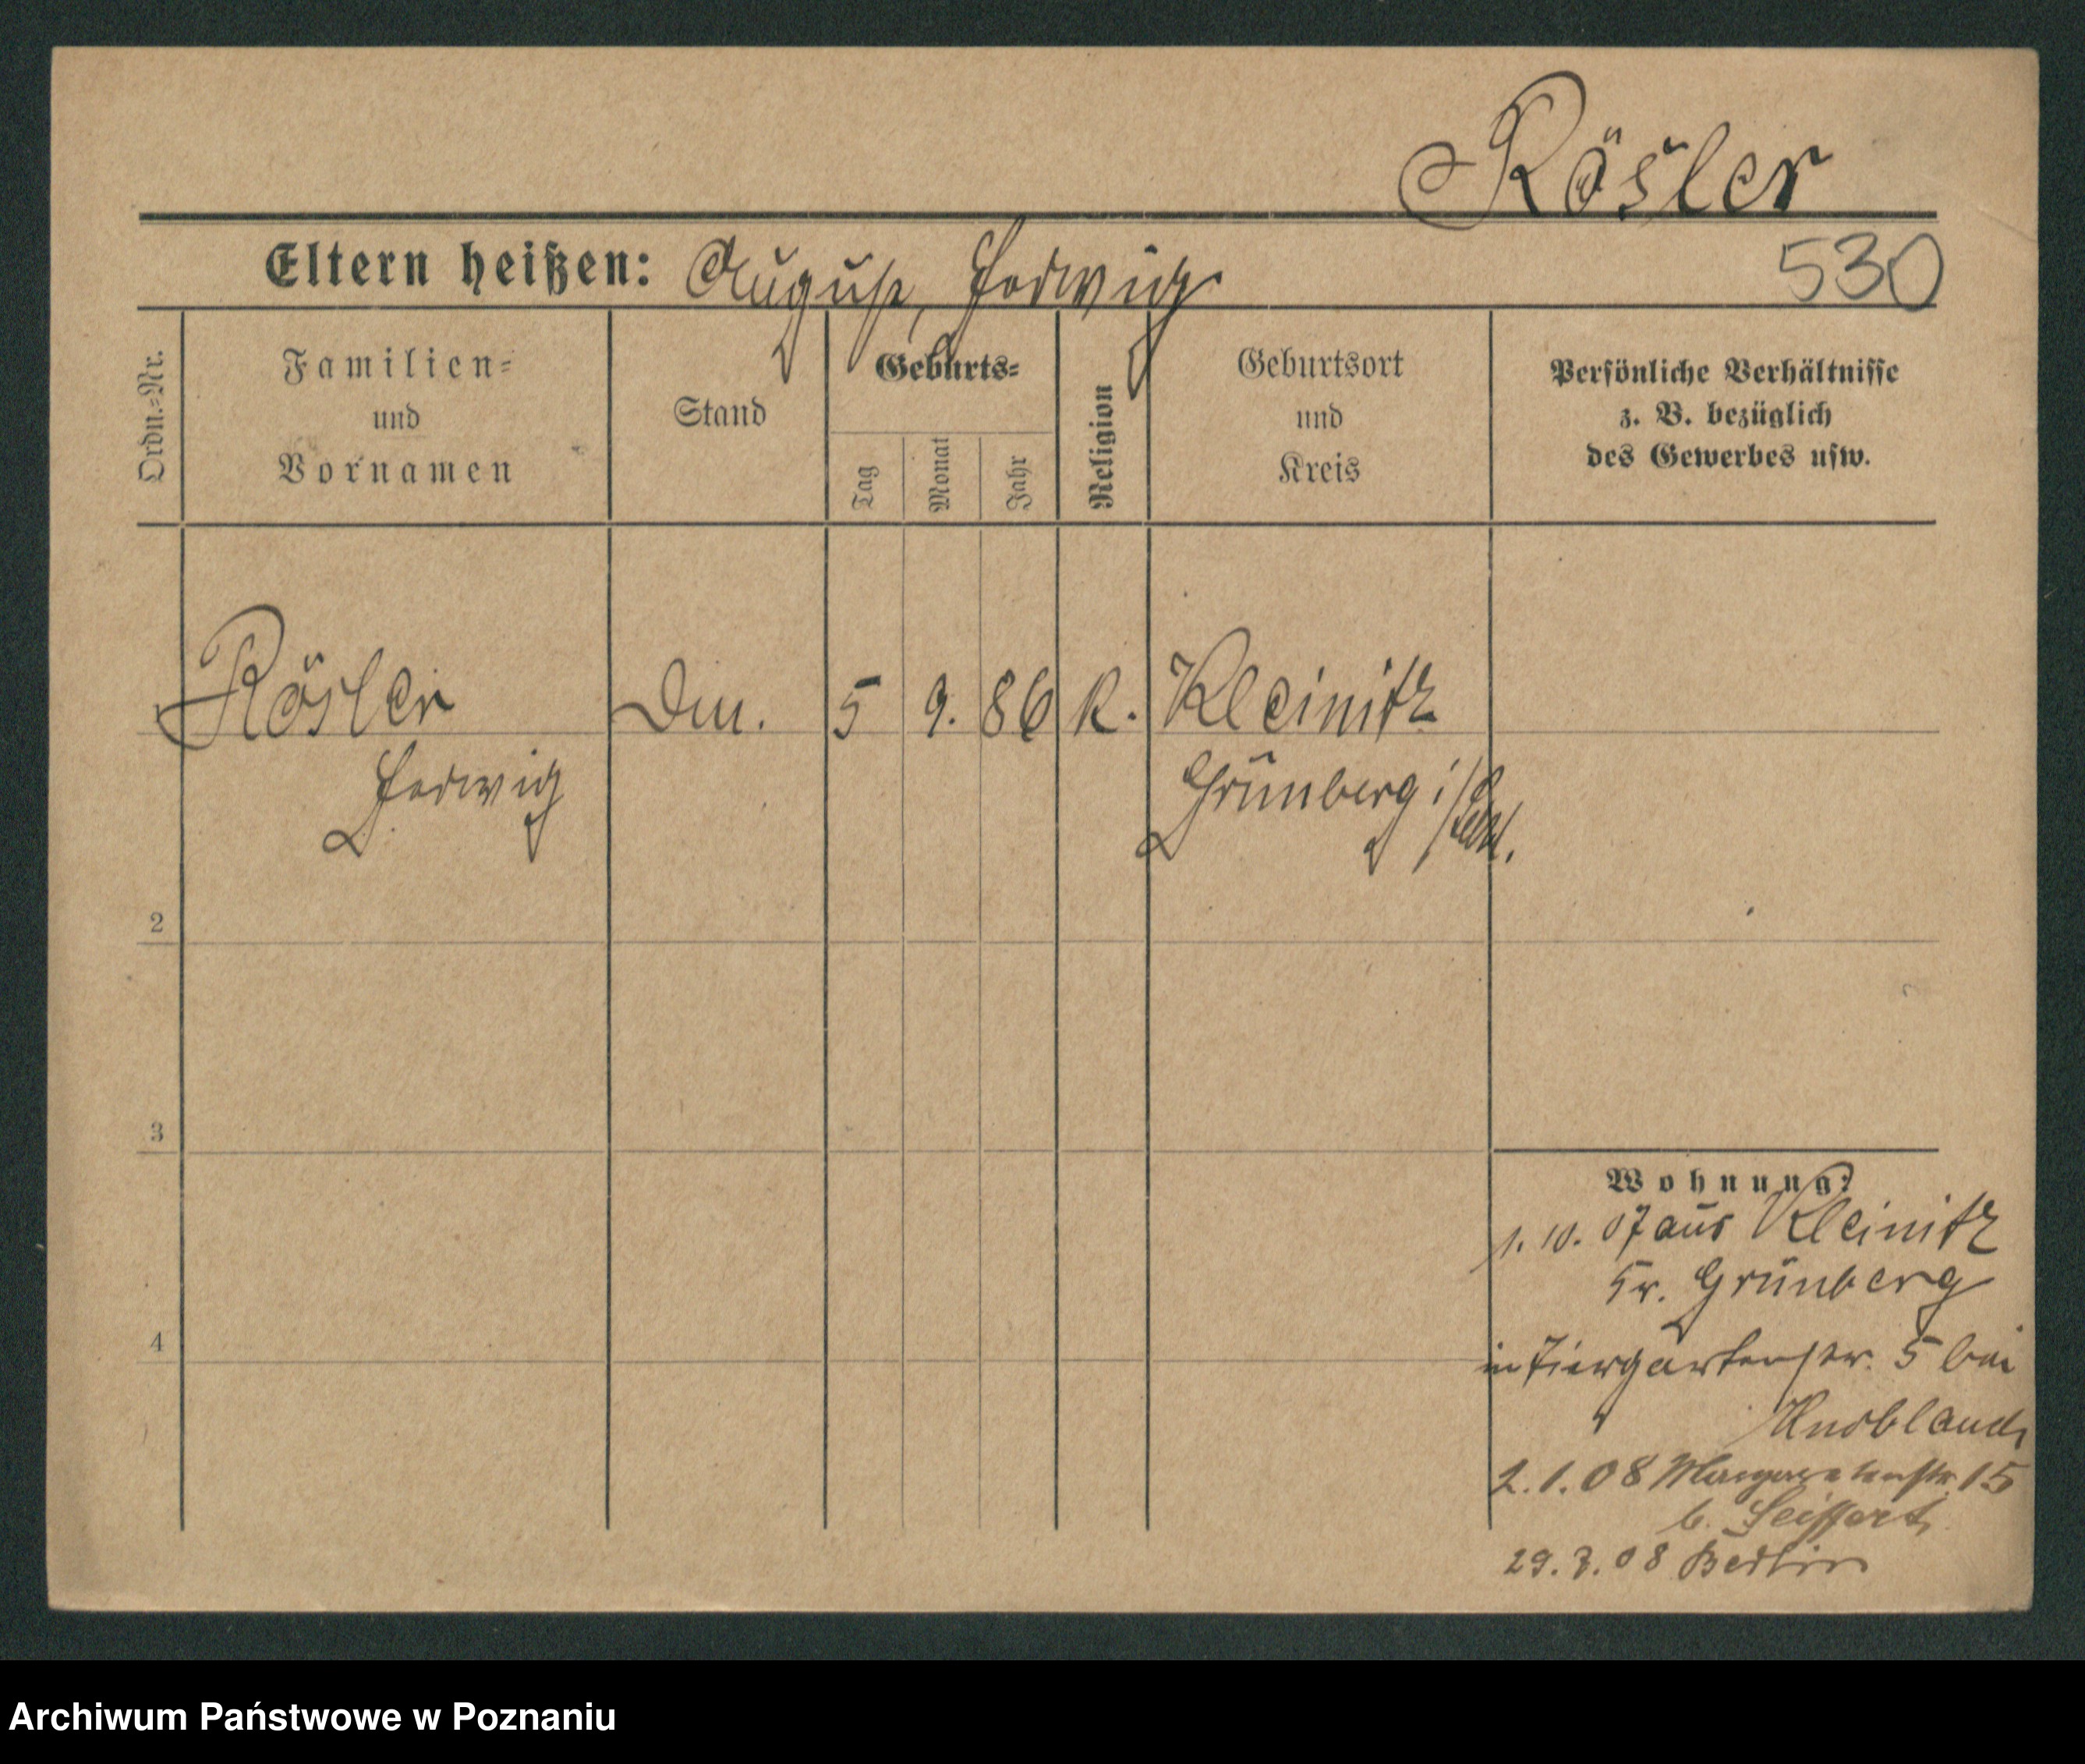 Rösler
530
Eltern heißen: August, Hedwig
Ordn.-Nr.
Familien-
und
Vornamen
Stand
Geburts-
Tag
Monat
Jahr
Religion
Geburtsort
und
Kreis
Persönliche Verhältnisse
z. B. bezüglich
des Gewerbes usw.
1 Rösler Dm. 5 9. 86 K. Kleinitz
Hedwig Grünberg i/Schl.
2
3
4
Wohnung:
1. 10. 07 aus Kleinitz
Kr. Grünberg
in Tiergartenstr. 5 bei
Knoblauch
2. 1. 08 Margaretenstr. 15
b. Seiffert
29. 3. 08 Berlin
Archiwum Państwowe w Poznaniu